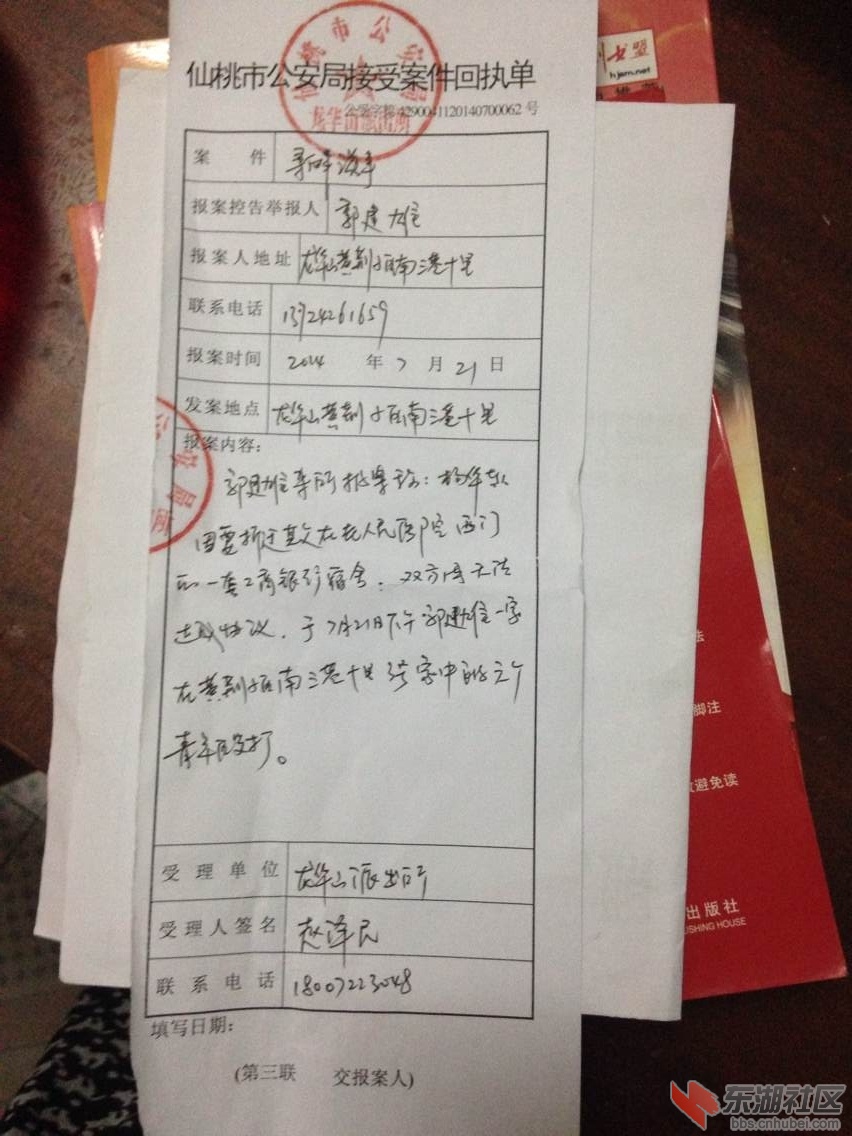 仙桃市公安局接受案件回执单
公受字第4290041120140700062 号
龙华山派出所
案 件 寻衅滋事
报案控告举报人 郭建雄
报案人地址 龙华山黄荆 南三巷十号
联系电话 13724261659
报案时间 2014 年 7 月 21 日
发案地点 龙华山黄荆 南三巷十号
报案内容:
郭建雄来所报案称:
因要拆迁其父在老人民医院西门
的一套工商银行宿舍,双方因无法
达成协议,于7月21日下午郭建雄一家
在黄荆 南三巷十号家中被三个
青年殴打。
受理单位 龙华山派出所
受理人签名 赵泽民
联系电话 18007223048
填写日期:
(第三联 交报案人)
hjsm.net
脚注
避免读
出版社
SHING HOUSE
东湖社区
bbs.cnhubei.com